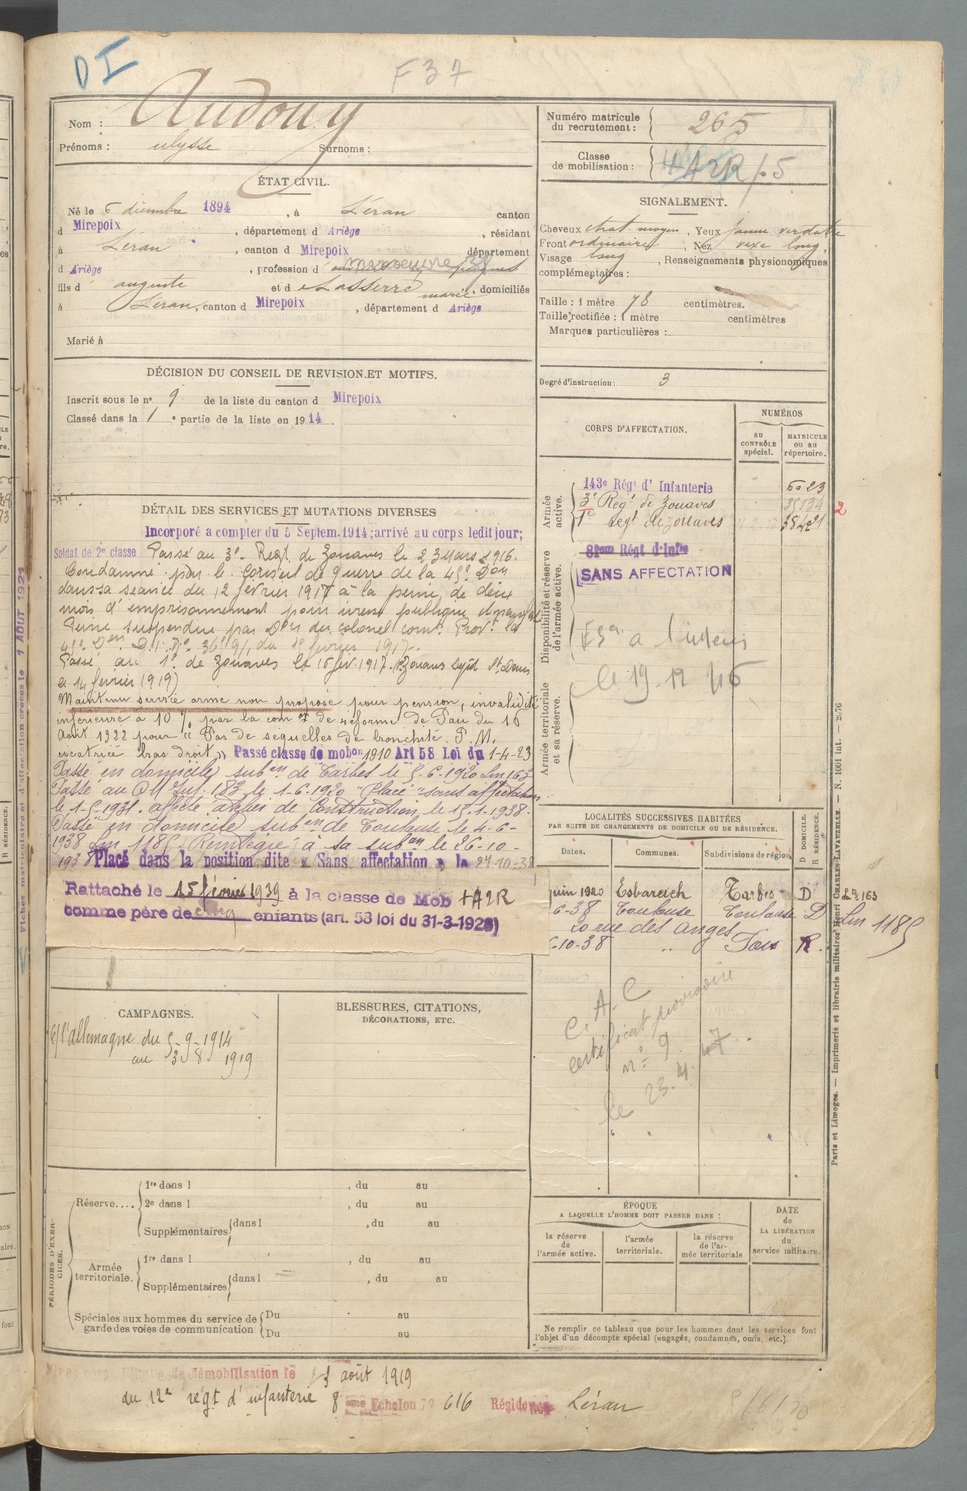 DI
F37
Nom : Audouy
Prénoms : ulysse Surnoms :
ÉTAT CIVIL.
Né le 6 décembre 1894, à Léran canton
d Mirepoix, département d Ariège, résidant
à Léran, canton d Mirepoix département
d Ariège, profession d manoeuvre
fils d auguste et d Lasserre marie domiciliés
à Léran, canton d Mirepoix, département d Ariège
Marié à
DÉCISION DU CONSEIL DE REVISION ET MOTIFS.
Inscrit sous le nº 9 de la liste du canton d Mirepoix
Classé dans la 1e partie de la liste en 1914.
DÉTAIL DES SERVICES ET MUTATIONS DIVERSES
Incorporé a compter du 5 Septem. 1914; arrivé au corps ledit jour;
Soldat de 2e classe Passé au 3e Regt de Zouaves le 23 mars 1916.
Condamné par le Conseil de guerre de la 45e Don
dans sa séance du 12 février 1917 à la peine de deux
mois d'emprisonnement pour ivresse publique et manifeste
Peine suspendue par Don du colonel comt Provt la
45e Don
Passé au 1e de Zouaves le 15 fév 1917. Zouaves dépôt St Denis
14 février 1919)
Maintenu service armé non proposé pour pension, invalidité
inférieure à 10 % par la com on de réforme de Pau du 16
Août 1922 pour "Pas de séquelles de bronchite. P.M.
cicatrice bras droit" Passé classe de mobon 1910 Art 58 Loi du 1-4-23
Passé en domicile subon de Tarbes le 5-6-1920 Lin 163
"Placé" sans affectation
le 1-5-1931. affecté atelier de Construction le 15-1-1938.
Passé en domicile subon de Toulouse le 4-6-
1938 Lin 1185. Réintègre à sa subon le 26-10-
1938 Placé dans la position dite « Sans affectation » le 27-10-38
Rattaché le 15 février 1939 à la classe de Mob
comme père de cinq enfants (art. 58 loi du 31-3-1928)
CAMPAGNES.
c/ l'allemagne du 5-9-1914
au 31 8 1919
BLESSURES, CITATIONS,
DÉCORATIONS, ETC.
PÉRIODES D'EXERCICES.
Réserve....
1re dans l , du au
2e dans l , du au
Supplémentaires dans l , du au
Armée
territoriale.
1re dans l , du au
Supplémentaires dans l , du au
Spéciales aux hommes du service de
garde des voies de communication
Du au
Du au
Numéro matricule
du recrutement : 265
Classe
de mobilisation :
SIGNALEMENT.
Cheveux chat. moyen, Yeux jaune verdâtre
Front ordinaire, Nez vexe long,
Visage long, Renseignements physionomiques
complémentaires :
Taille : 1 mètre 78 centimètres.
Taille rectifiée : 1 mètre centimètres
Marques particulières :
Degré d'instruction : 3
CORPS D'AFFECTATION.
NUMÉROS
AU CONTRÔLE spécial.
MATRICULE OU AU répertoire.
Armée active.
143e Régt d' Infanterie 6023
3e Regt de Zouaves 35194
1e Regt de Zouaves
2
Disponibilité et réserve de l'armée active.
81eme Régt d'Infie
SANS AFFECTATION
Armée territoriale et sa réserve.
le 19 12
LOCALITÉS SUCCESSIVES HABITÉES
PAR SUITE DE CHANGEMENTS DE DOMICILE OU DE RÉSIDENCE.
Dates. Communes. Subdivisions de région. D DOMICILE. R RÉSIDENCE.
juin 1920 Esbareich Tarbes D Lin 163
6-38 Toulouse Toulouse D Lin 1185
20 rue des anges
6-10-38 " Foix R.
C. A. C
certificat provisoire
nº 9
le 23.4. 47
ÉPOQUE
A LAQUELLE L'HOMME DOIT PASSER DANS :
la réserve de l'armée active.
l'armée territoriale.
la réserve de l'armée territoriale
DATE
de
LA LIBÉRATION
du
service militaire.
Ne remplir ce tableau que pour les hommes dont les services font
l'objet d'un décompte spécial (engagés, condamnés, omis, etc.).
Paris et Limoges. — Imprimerie et librairie militaires Henri CHARLES-LAVAUZELLE — N. 1001 Int. —
démobilisation le août 1919
du 12e regt d'infanterie 8 ème Echelon 616 Résidence Léran